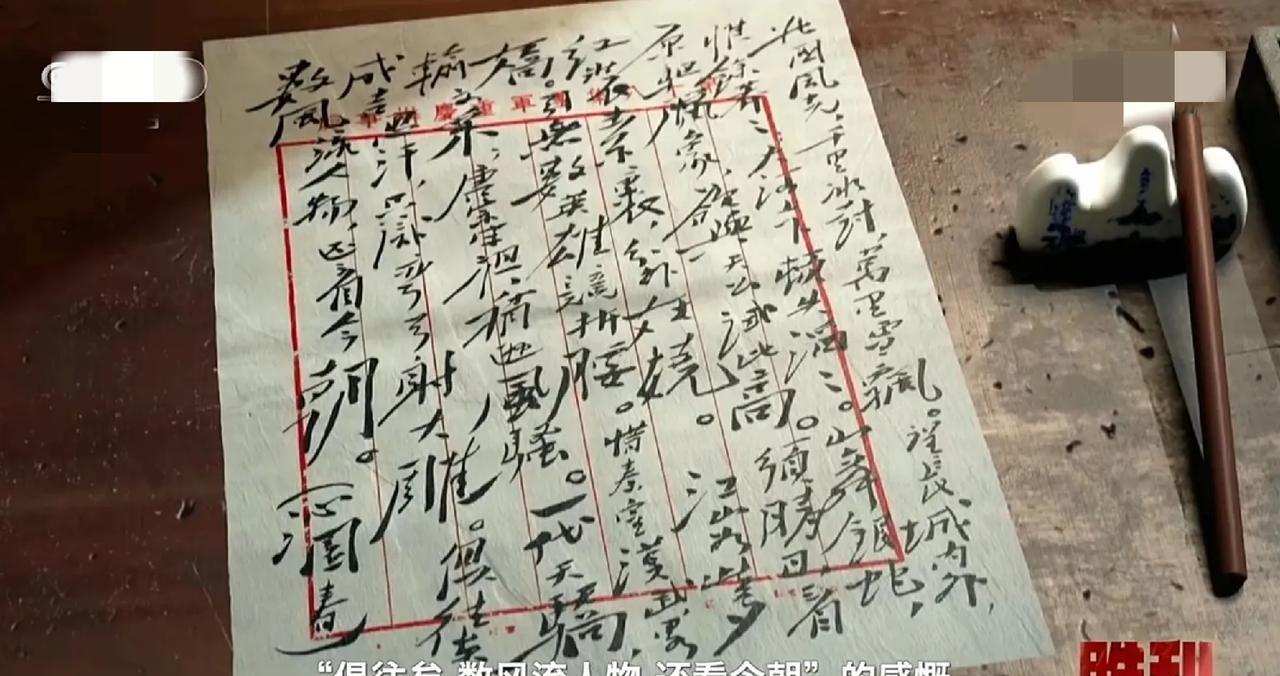 軍重慶
北国風光,千里冰封,萬里雪飘。望長城内外,
惟餘莽二,大河上下,頓失滔二。山舞银蛇,
原駈蠟象,欲與天公試比高。须晴日,看
红装素裹,分外妖娆。江山如此多
嬌。引無数英雄競折腰。惜秦皇漢武,略
輸文采,唐宗宋祖,稍逊風騷。一代天驕,
成吉思汗,只識弯弓射大雕。俱往矣
数風流人物,还看今朝。
沁園春
“俱往矣 数风流人物 还看今朝”的感慨
胜利